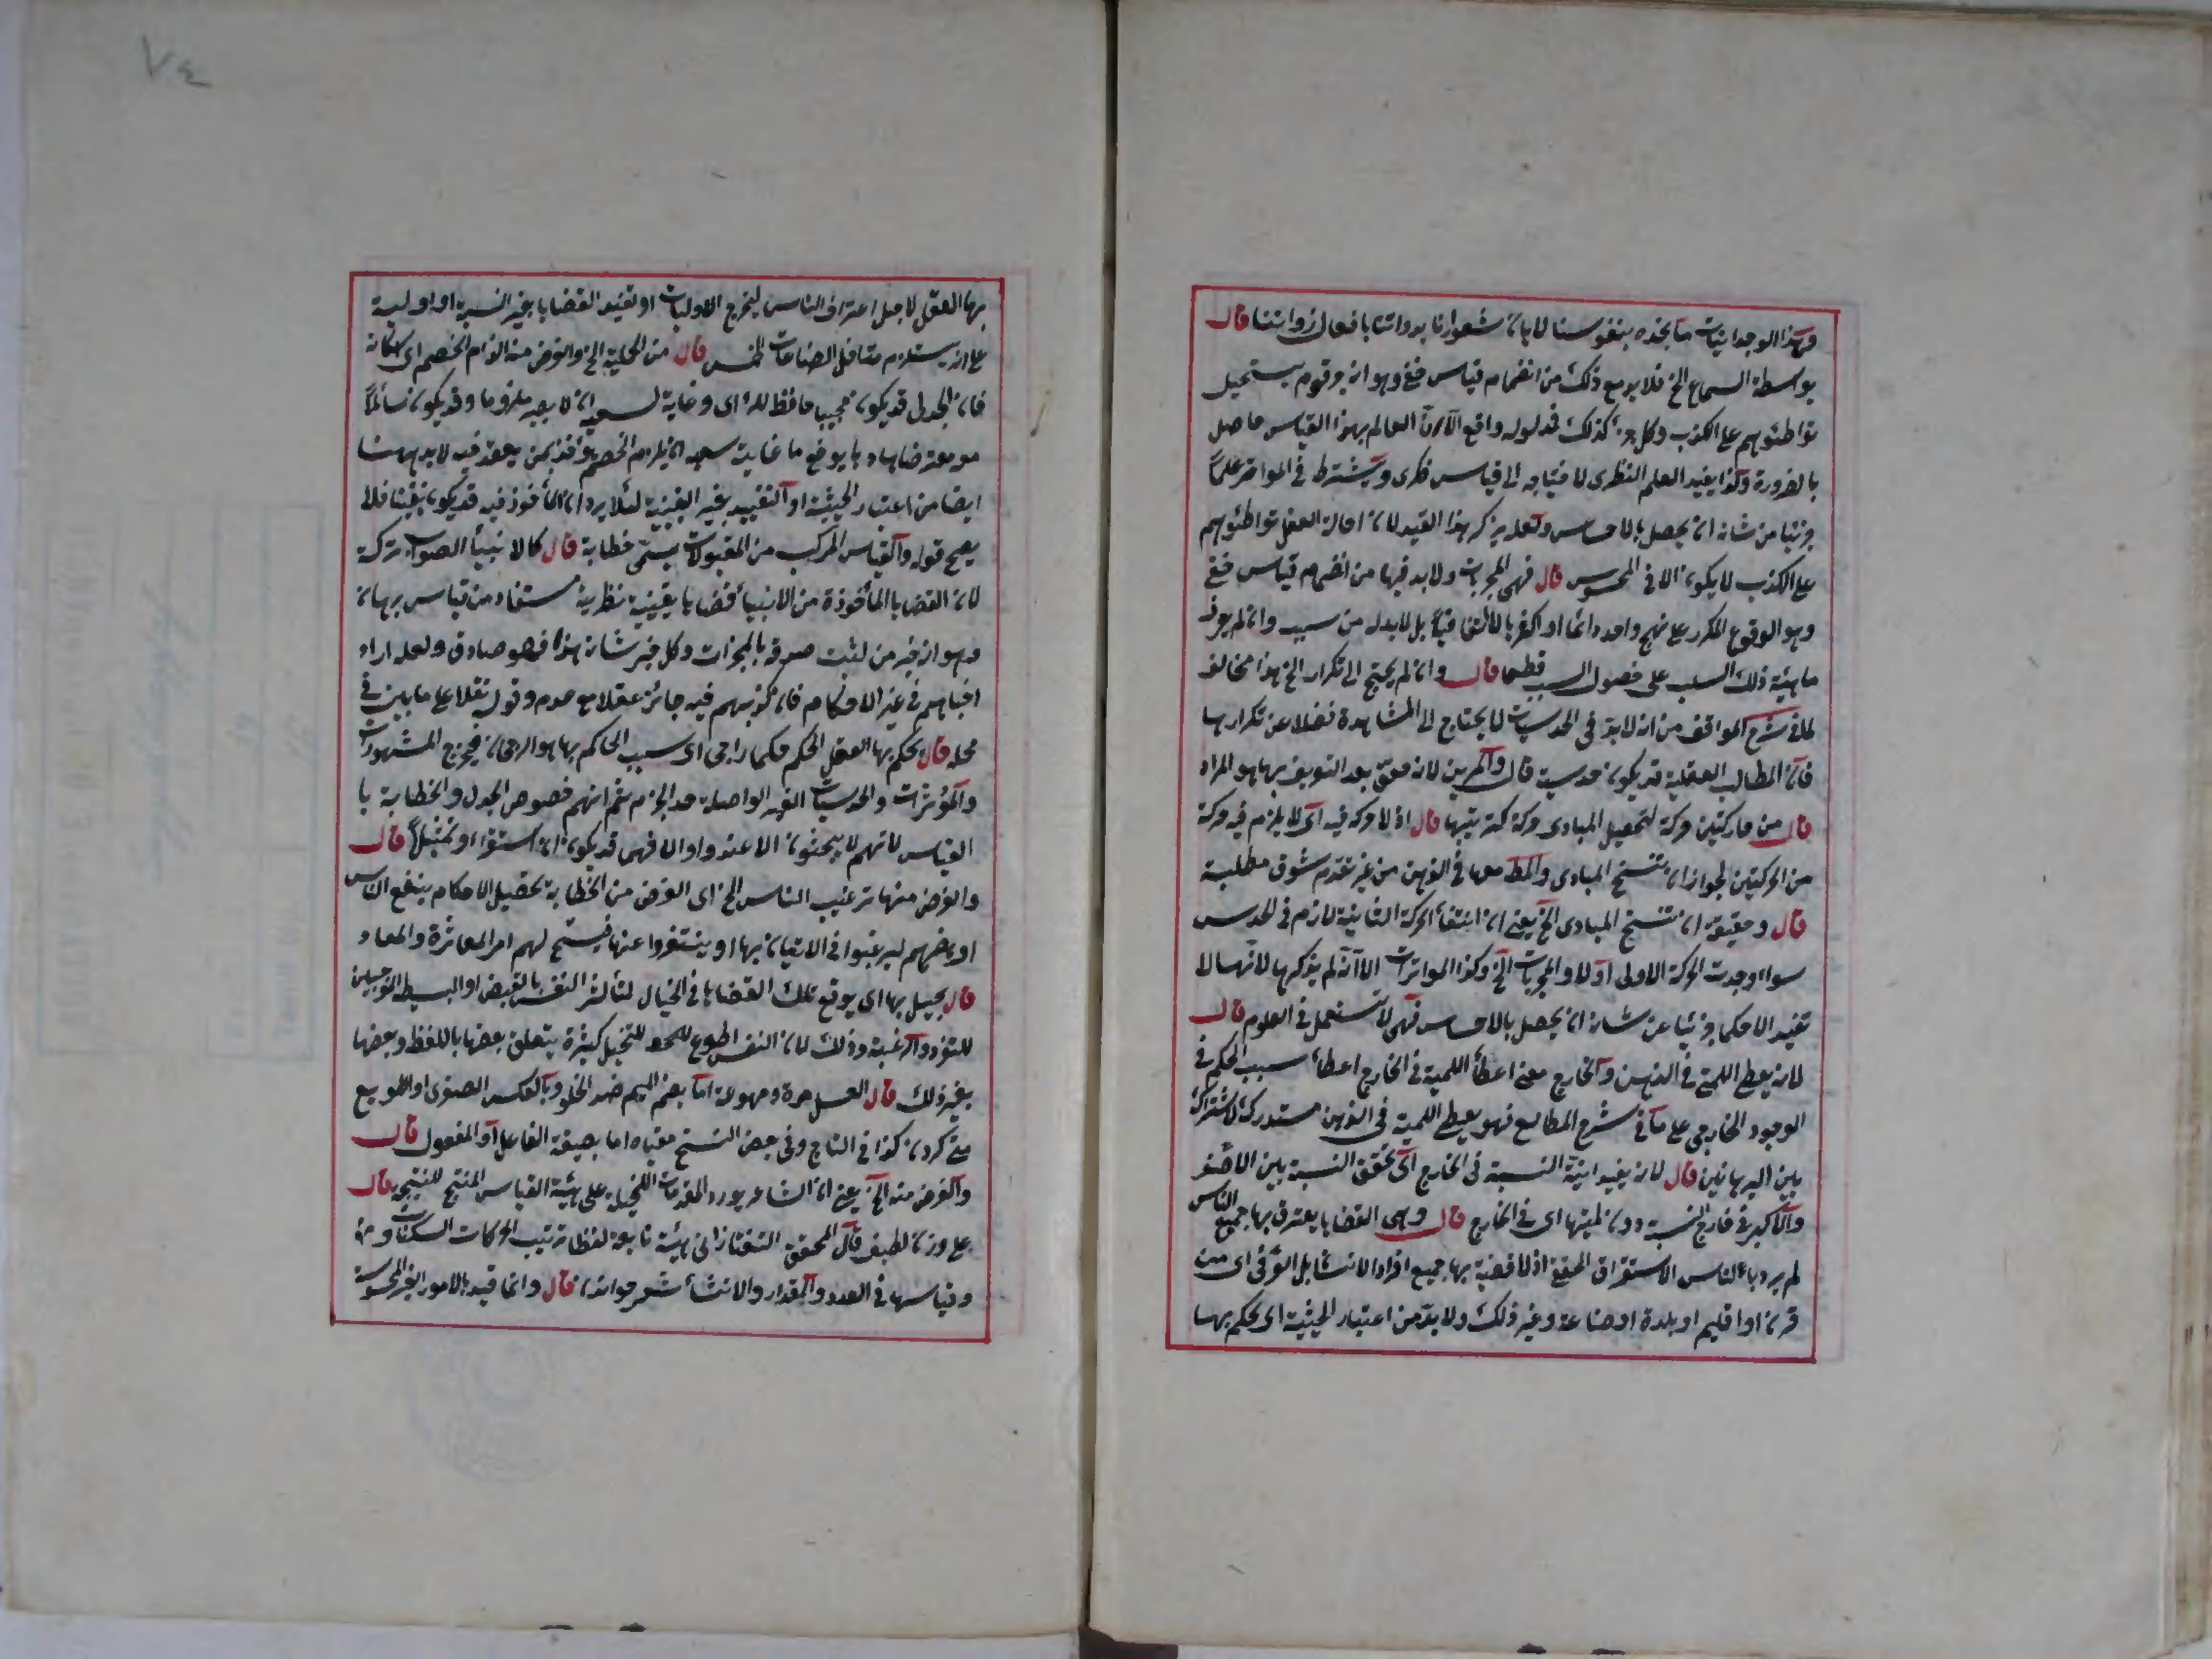 وهذا الوجدانيات ما نجده بنفوسنا لا بان شعورنا بذواتنا بافعال ذواتنا قال
بواسطة السماع الخ فلا بد مع ذلك من انضمام قياس خفي وهو انه خبر قوم يستحيل
تواطئوهم على الكذب وكل خبر كذلك فمدلوله واقع الا ان العالم بهذا القياس حاصل
بالضرورة وكذا يفيد العلم النظرى لاحتياجه الى قياس فكرى ويشترط في المتواتر علماً
جزئيا من شانه ان يحصل بالاحساس ولعله لم يذكر هذا القيد لان احالة العقل تواطئوهم
على الكذب لا يكون الا في المحسوس قال فهى المجربات ولا بد فيها من انضمام قياس خفي
وهو الوقوع المكرر على نهج واحد دائما او اكثريا لا اتفاقياً بل لا بد له من سبب وان لم يعرف
ماهية ذلك السبب حصول المسبب قطعا قال وان لم يحتج الى تكرار الخ هذا مخالف
لما في شرح المواقف من انه لا بد في الحدسيات لا يحتاج الى المشاهدة فضلا عن تكرارها
فان المطالب العقلية قد يكون حدسية قال
قال من حركتين حركة لتحصيل المبادى وحركة لترتيبها قال اذ لا حركة فيه اى لا يلزم فيه حركة
من الحركتين لجواز ان تسنح المبادى والمط معا في الذهن من غير تقدم شوق مطلبه
قال وحقيقته ان تسنح المبادى الخ يعنى ان انتفأ الحركة الثانية لازم في الحدس
سواء وجدت الحركة الاولى اولا والمجربات الخ وكذا المتواترات الا انه لم يذكرها لانها لا
تفيد الاحكما جزئيا عن شانه ان يحصل بالاحساس فهى لا تستعمل في العلوم قال
لانه يعطى اللمية في الذهن والخارج معنى اعطأ اللمية في الخارج اعطأ سبب الحكم في
الوجود الخارجى على ما في شرح المطالع فهو يعطى اللمية في الذهن مستدرك لاشتراكه
بين البرهانين قال لانه يفيد انية النسبة في الخارج اى تحقق النسبة بين الاصغر
والاكبر في خارج النسبة دون لميتها اى في الخارج قال وهى القضايا يعترف بها جميع الناس
لم يرد بالناس الاستغراق الحقيقى اذ لا قضية بها جميع افراد الانسان بل العرفى اى من
قرن او اقليم او بلدة او صناعة وغير ذلك ولا بد من اعتبار الحيثية اى يحكم بها
٧٤
بها العقل لاجل اعتراف الناس ليخرج الاوليات او تقييد القضايا بغير النسبة او اولية
على انه يستلزم تداخل الصناعات الخمس قال من الجدلية الخ والغرض منه الزام الخصم اى اسكاته
فان الجدلى قد يكون مجيبا حافظا لرأى وغاية سعيه ان لا يصير ملزوما وقد يكون سائلاً
معترضا هادما لوضع ما غاية سعيه ان يلزم الخصم قال ممن يعتقد فيه لا بد ههنا
ايضا من اعتبار الحيثية او التقييد بغير اليقينية لئلا يرد ان المأخوذ فيه قد يكون يقينا فلا
يصح قوله والقياس المركب من المقبولات يسمى خطابة قال كالانبيأ الصواب تركه
لان القضايا المأخوذة من الانبيأ قضايا يقينية نظرية مستفاد من قياس برهان
وهو انه خبر من ثبت صدقه بالمعجزات وكل خبر شانه هذا فهو صادق ولعله اراد
اخبارهم في غير الاحكام فان كذبهم فيه جائز عقلا مع عدم وقوعه نقلا على ما بين في
محله قال يحكم بها العقل الحكم حكما راجحا اى سبب الحاكم بها هو الرجحان فيخرج المشهورات
والحدسيات الغير الواصلة حد الجزم ثم انهم خصوص الجدل والخطابة با
القياس لانهم لا يبحثون الا عنه والا فهى قد يكون استقرا او تمثيلاً قال
والغرض منها ترغيب الناس الخ اى الغرض من الخطابة تحصيل الاحكام ينفع الناس
او يضرهم ليرغبوا في الاتيان بها او ينتفروا عنها فيستج لهم امر المعاشرة والمعاد
قال يخيل بها اى يوقع تلك القضايا في الخيال لتأثر النفس بالقبض او البسط الموجبين
للتنفر والرغبة وذلك لان النفس اطوع للتخيل كثيرة يتعلق بعضها باللفظ وبعضها
بغير ذلك قال العسل مرة ومهوعة اما بضم الميم ضد الحلو وبالعكس الصفرى او التهويع
قى كردن كذا في التاج وفى بعض النسخ مقياه اما بصيغة الفاعل او المفعول قال
والغرض منه الخ يعنى ان الشاعر يورد المقدمات التخييلية على هيئة القياس المنتج للنتيجة قال
على وزن لطيف قال المحقق التفتازانى هيئة تابعة لنظام ترتيب الحركات السكنات
وقياسها في العدد والمقدار والانشأ شعر خواندن قال وانما قيد بالامور الغير المحسوسة